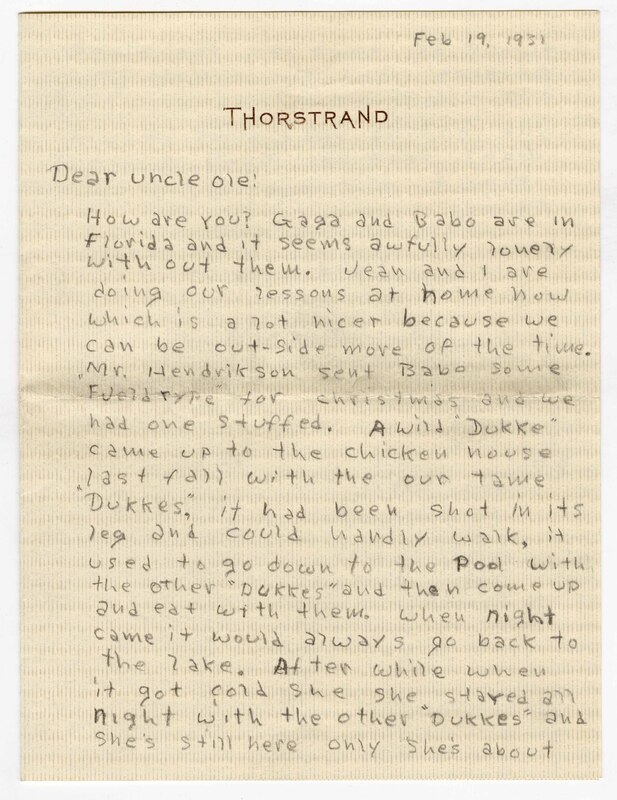 Feb 19, 1931
THORSTRAND
Dear uncle Ole!
How are you? Gaga and Babo are in
Florida and it seems awfully lonely
with out them. Jean and I are
doing our lessons at home now
which is a lot nicer because we
can be out-side more of the time.
"Mr. Hendrikson sent Babo some
for christmas and we
had one stuffed. A wild "Dukke"
came up to the chicken house
last fall with the our tame
"Dukkes," it had been shot in its
leg and could hardly walk, it
used to go down to the Pool with
the other "Dukkes" and then come up
and eat with them. When night
came it would always go back to
the lake. After while when
it got cold she she stayed all
night with the other "Dukkes" and
she's still here only she's about